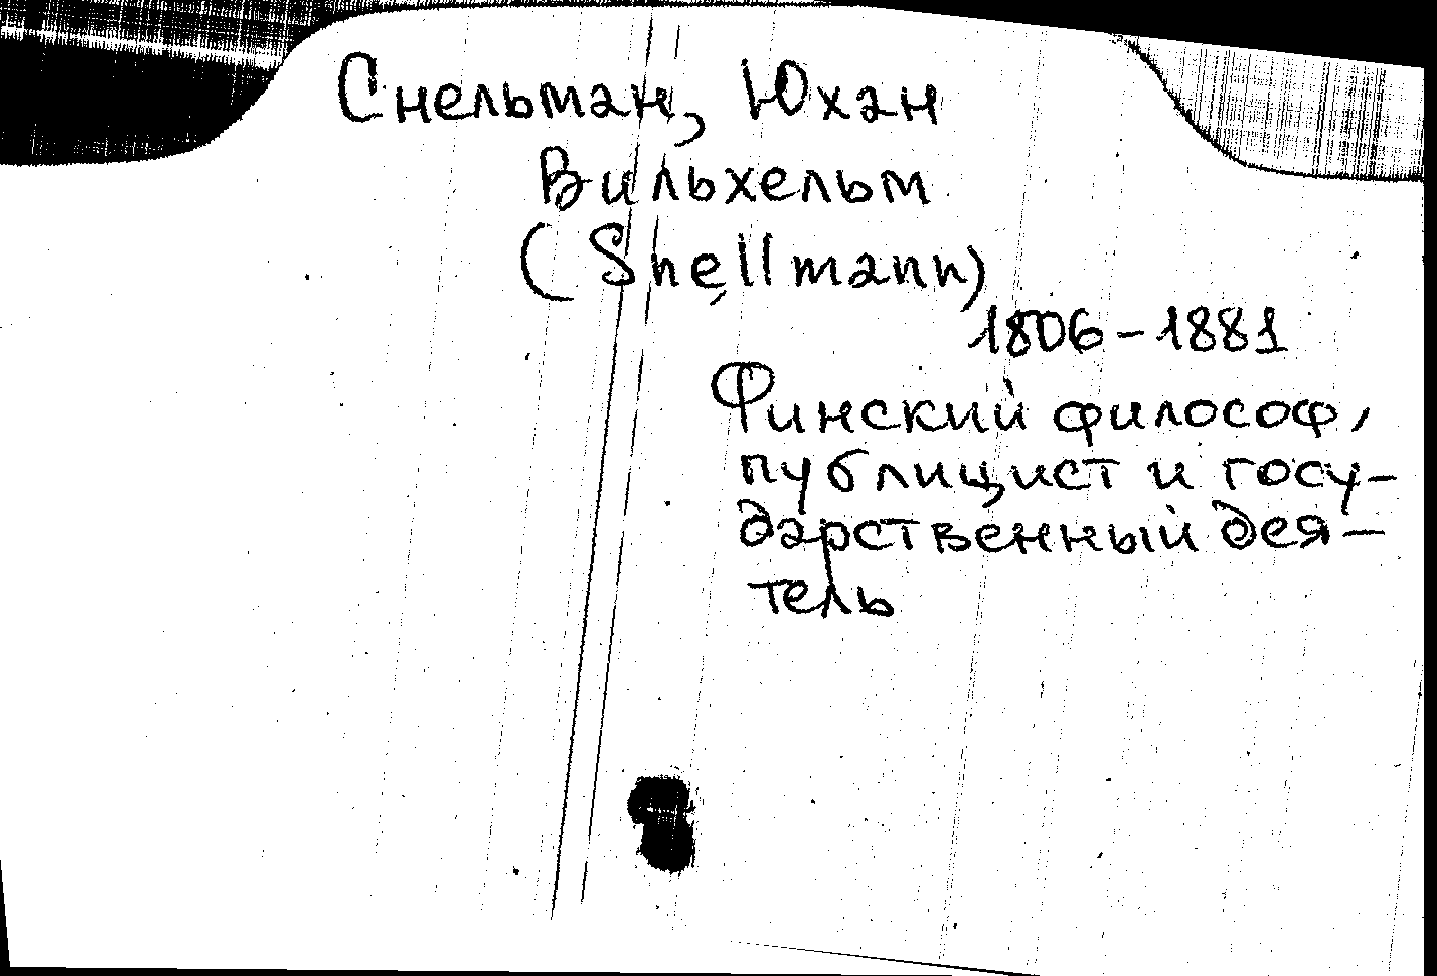 Снельман, Юхан
Вильхельм
(Snellmann)
1806-1881
Финский философ,
публицист и госу-
дарственный дея-
тель